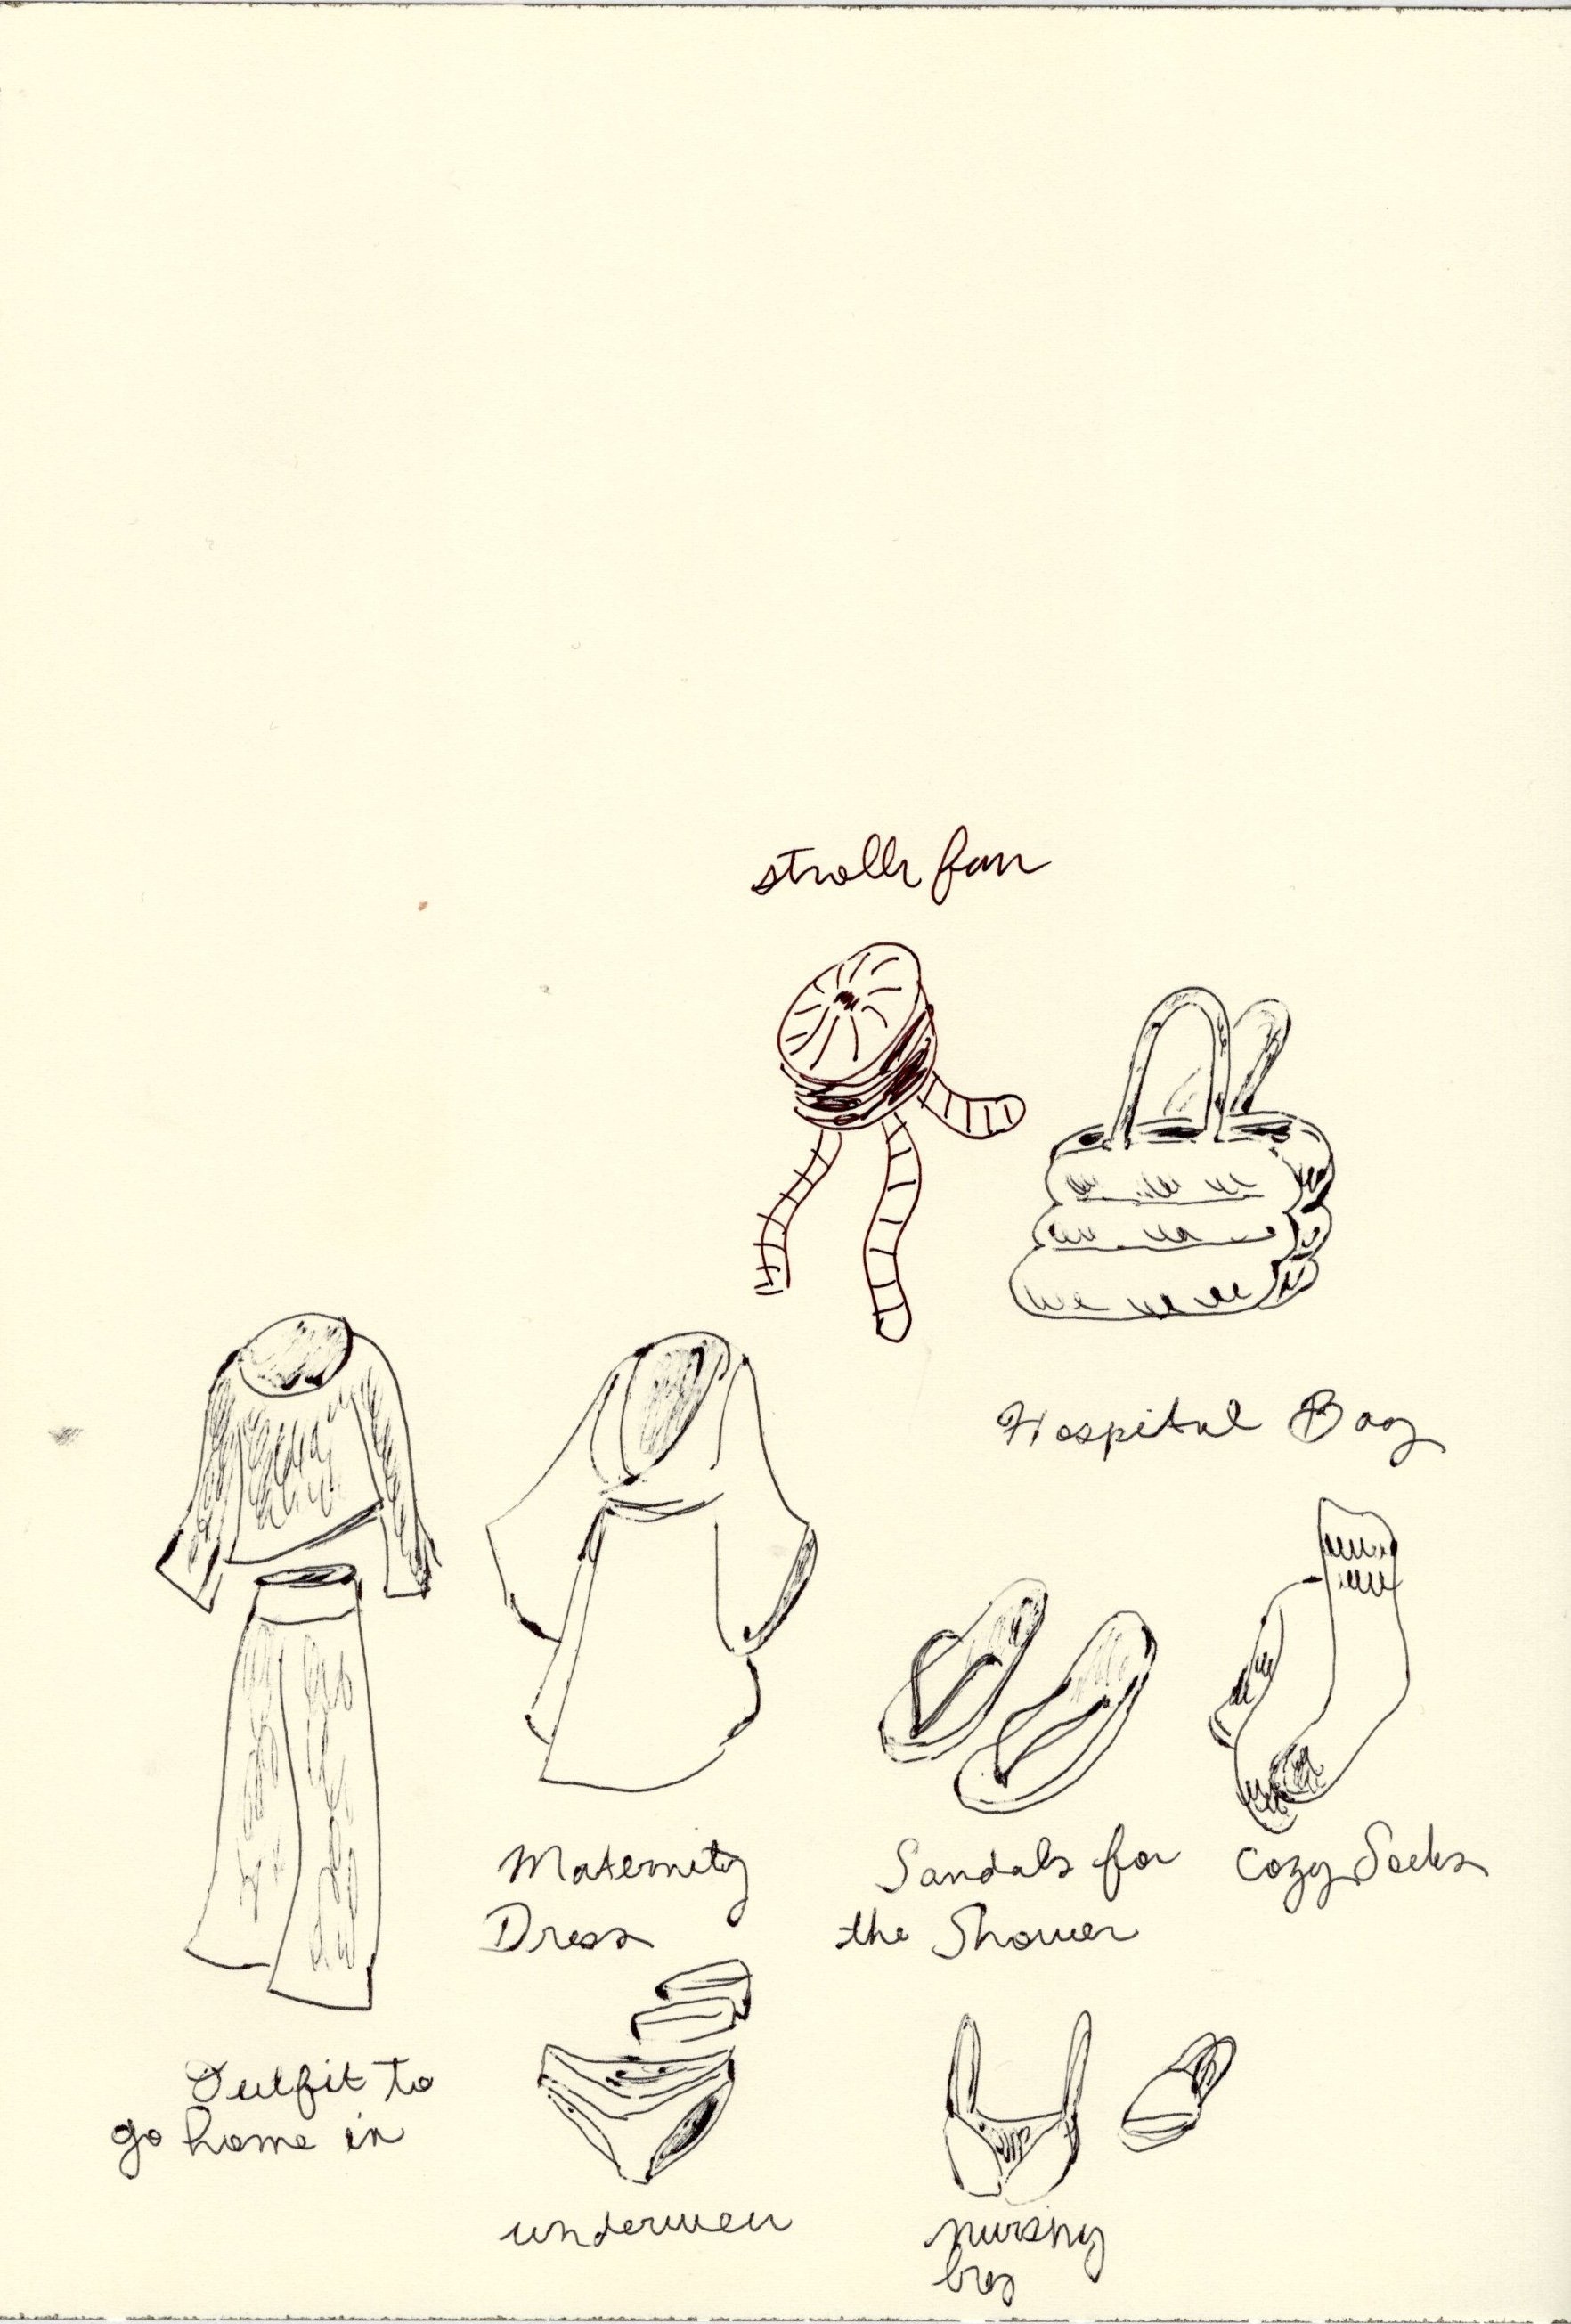 stroller fan
Hospital Bag
Maternity
Dress
Sandals for
the Shower
Cozy Socks
Outfit to
go home in
underwear
nursing
bras